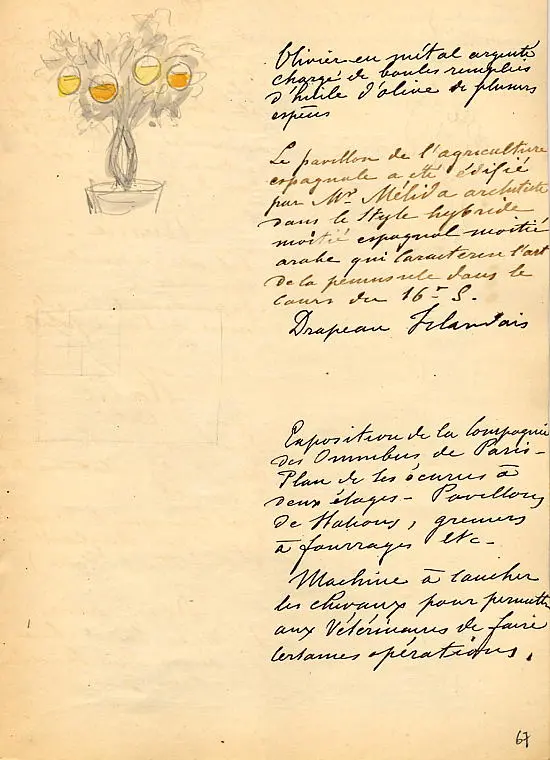 Olivier en métal argenté
chargé de boules remplies
d'huile d'olive de plusieurs
espèces
Le pavillon de l'agriculture
espagnole a été édifié
par Mr Mélida architecte
dans le style hybride
moitié espagnol moitié
arabe qui caractérise l'art
de la péninsule dans le
cours du 16e S.
Drapeau Islandais
Exposition de la Compagnie
des Omnibus de Paris -
Plan de les écuries à
deux étages - Pavillons
de stations, greniers
à fourrages etc -
Machine à coucher
les chevaux pour permettre
aux Vétérinaires de faire
certaines opérations.
67